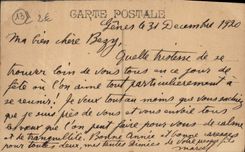 (13) 2E
CARTE POSTALE
Gênes le 31 Decembre 1920
Ma bien chère Bezy,
Quelle tristesse de se
trouver loin de vous tous en ce jour de
fête où l'on aime tout particulièrement à
se reunir. Je veux tout au moins que vous sachiez
que je suis près de vous et vous envoie tous
les voeux que l'on peut faire pour vous de calme
et de tranquillité. Bonne Année et bonne
pour toutes deux, mes tantes